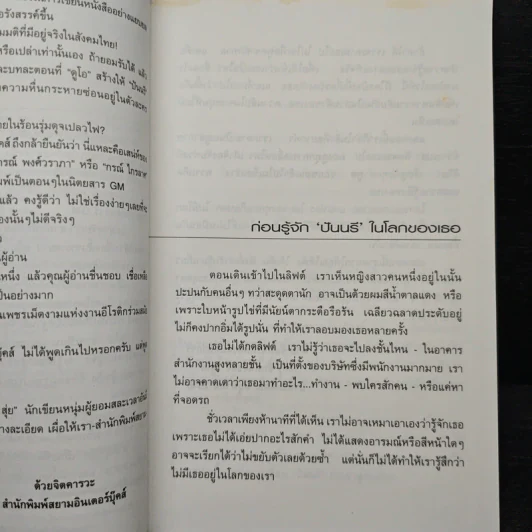 รังสรรค์ขึ้น
มมติที่มีอยู่จริงในสังคมไทย!
หรือเปล่าเท่านั้นเอง ถ้ายอมรับได้ แล้ว
ะบทละตอนที่ "คูโอ" สร้างให้ "ปันนรี"
ความหื่นกระหายซ่อนอยู่ในตัวละคร
ายในร้อนรุ่มดุจเปลวไฟ?
คส์ ถึงกล้ายืนยันว่า นี่แหละคือเสน่ห์ของ
ากรณ์ พงศ์วราภา" หรือ "กรณ์ ไกรลาศ
มพ์เป็นตอนๆในนิตยสาร GM
แล้ว คงรู้ดีว่า ไม่ใช่เรื่องง่ายๆเลยที่จะ
องนั้นๆไม่ดีจริงๆ
ผู้อ่าน
หนึ่ง แล้วคุณผู้อ่านชื่นชอบ เชื่อเหลือ
ป็นอย่างมาก
นเพชรเม็ดงามแห่งงานอีโรติกร่วมสมัย
คส์ ไม่ได้พูดเกินไปหรอกครับ
สุ่ย" นักเขียนหนุ่มผู้ยอมสละเวลาอันมี
างละเอียด เผื่อให้เรา-สำนักพิมพ์สยาม
ด้วยจิตคารวะ
สำนักพิมพ์สยามอินเตอร์บุ๊คส์
ก่อนรู้จัก 'ปันนรี' ในโลกของเธอ
ตอนเดินเข้าไปในลิฟต์ เราเห็นหญิงสาวคนหนึ่งอยู่ในนั้น
ปะปนกับคนอื่นๆ ทว่าสะดุดตานัก อาจเป็นด้วยผมสีน้ำตาลแดง หรือ
เพราะใบหน้ารูปไข่ที่มีนัยน์ตากระตือรือร้น เฉลียวฉลาดประดับอยู่
ไม่ก็คงปากอิ่มได้รูปนั่น ที่ทำให้เราลอบมองเธอหลายครั้ง
เธอไม่ได้กดลิฟต์ เราไม่รู้ว่าเธอจะไปลงชั้นไหน - ในอาคาร
สำนักงานสูงหลายชั้น เป็นที่ตั้งของบริษัทซึ่งมีพนักงานมากมาย เรา
ไม่อาจคาดเดาว่าเธอมาทำอะไร...ทำงาน - พบใครสักคน - หรือแค่หา
ที่จอดรถ
ชั่วเวลาเพียงห้านาทีที่ได้เห็น เราไม่อาจเหมาเอาเองว่ารู้จักเธอ
เพราะเธอไม่ได้เอ่ยปากอะไรสักคำ ไม่ได้แสดงอารมณ์หรือสีหน้าใดๆ
อาจจะเรียกได้ว่าไม่ขยับตัวเลยด้วยซ้ำ แต่นั่นก็ไม่ได้ทำให้เรารู้สึกว่า
ไม่มีเธออยู่ในโลกของเรา